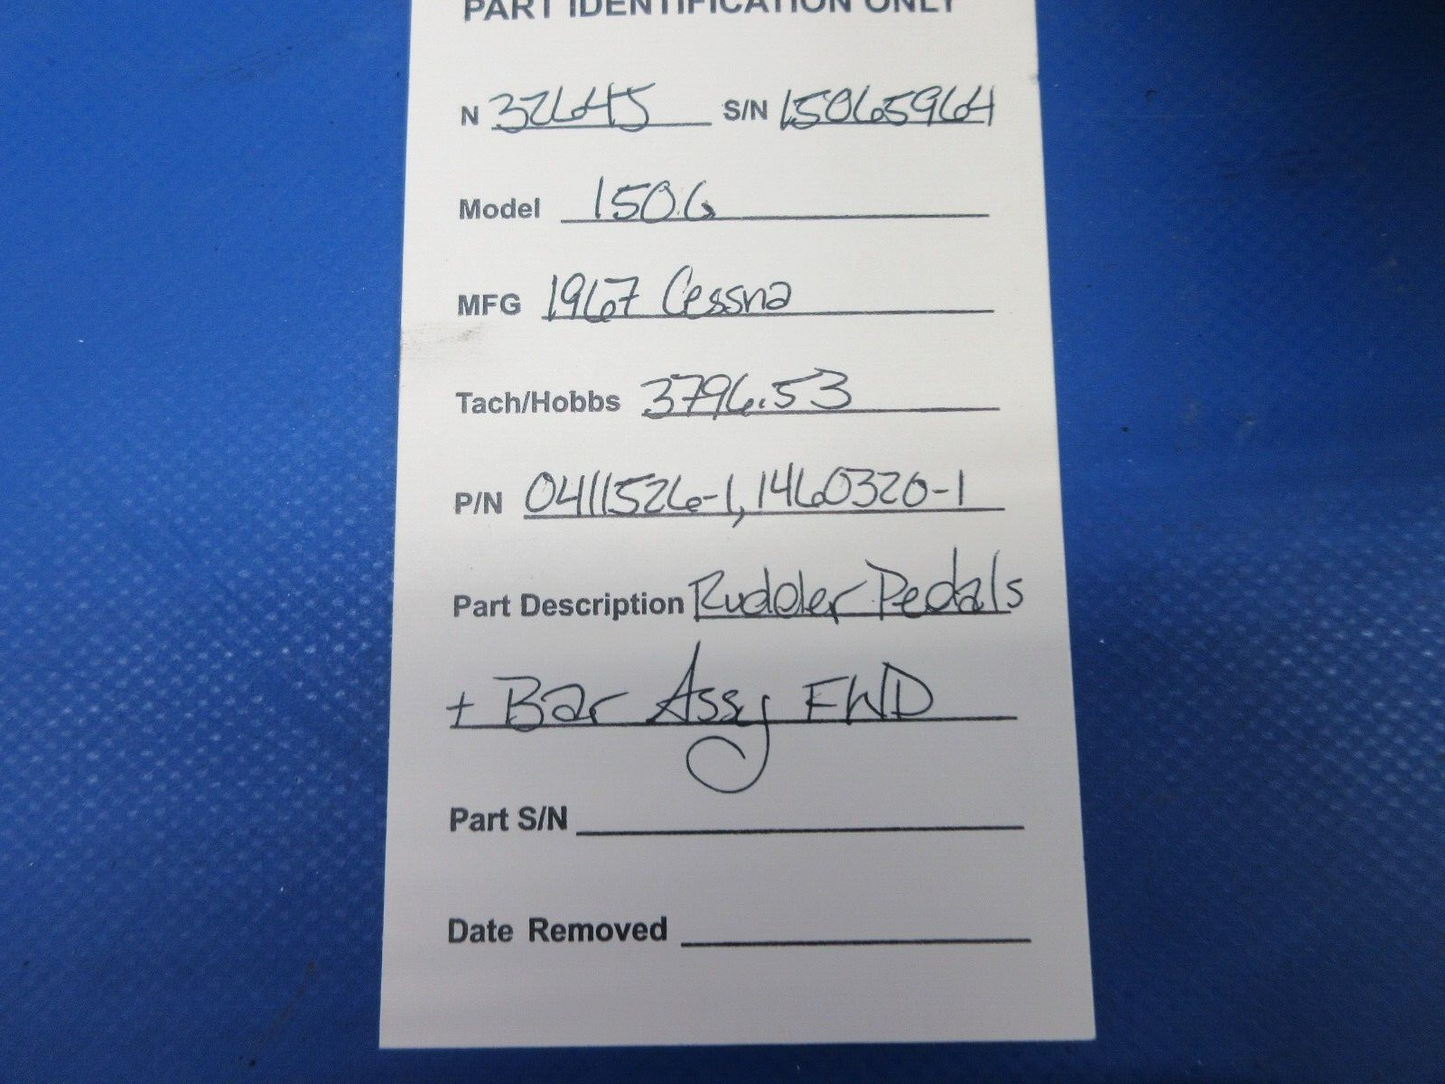 PART IDENTIFICATION ONLY
N 32645 S/N 15065964
Model 150G
MFG 1967 Cessna
Tach/Hobbs 3796.53
P/N 0411526-1, 1460320-1
Part Description Rudder Pedals
+ Bar Assy FWD
Part S/N
Date Removed